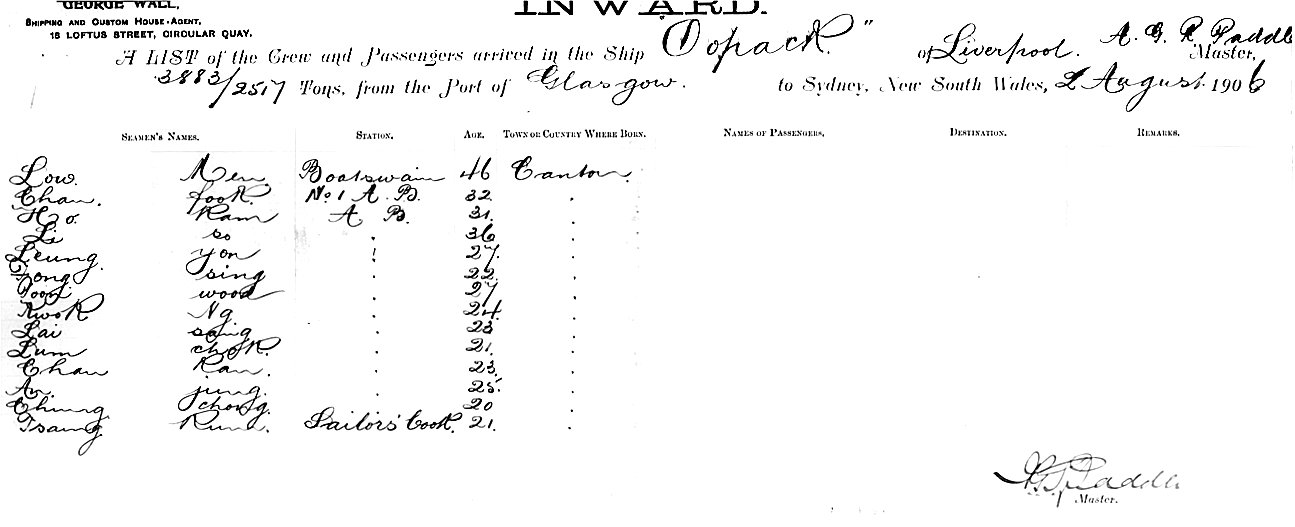 GEORGE WALL,
SHIPPING AND CUSTOM HOUSE AGENT,
16 LOFTUS STREET, CIRCULAR QUAY.
INWARD.
A LIST of the Crew and Passengers arrived in the Ship Oopack" of Liverpool. A. G. R. Paddle Master,
3883/2517 Tons, from the Port of Glasgow. to Sydney, New South Wales, 2 August 1906
SEAMEN'S NAMES. STATION. AGE. TOWN OR COUNTRY WHERE BORN. NAMES OF PASSENGERS. DESTINATION. REMARKS.
Low. Men Boatswain 46 Canton.
Chan. fook. No. 1 A. B. 32
Ho. Kam A B. 31.
Li so 36
Leung. yon 27.
Fong sing 22
wood 27
Kwok Ng 24
Lai 23
Lum chok. 21.
Chan Kan. 23
An. jung. 25.
Chung chong. 20
Tsang Sailors' Cook. 21.
Paddle
Master.